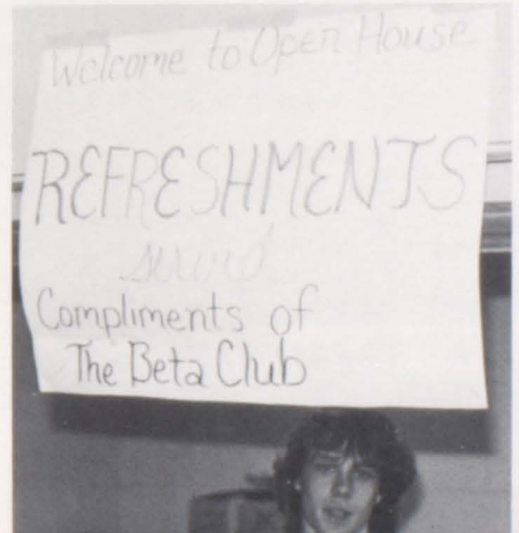 Welcome to Open House
REFRESHMENTS
served
Compliments of
The Beta Club